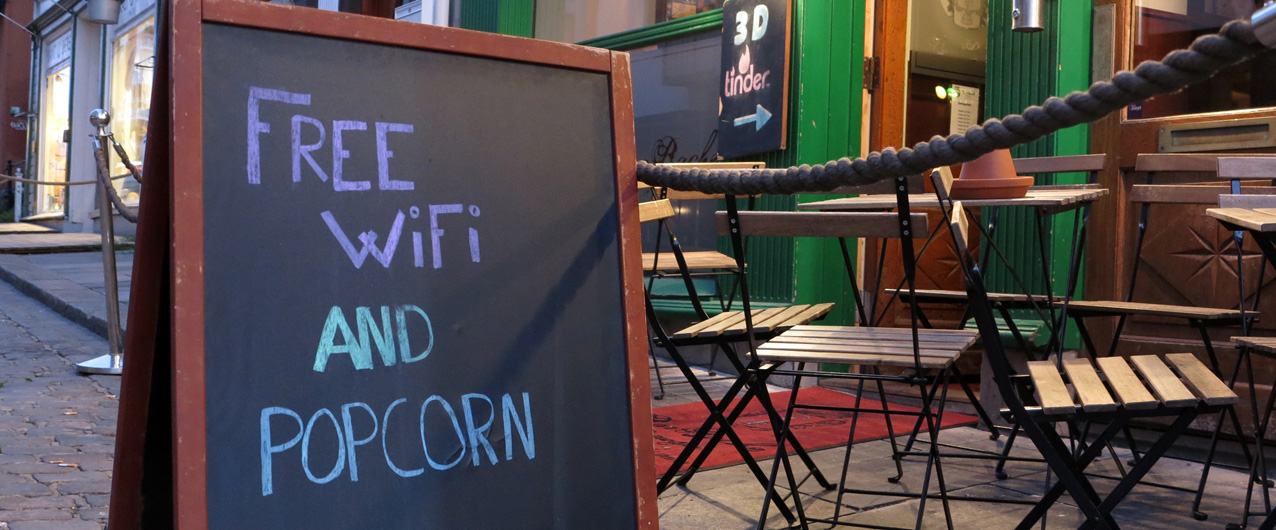 FREE
WiFi
AND
POPCORN
3D
tinder